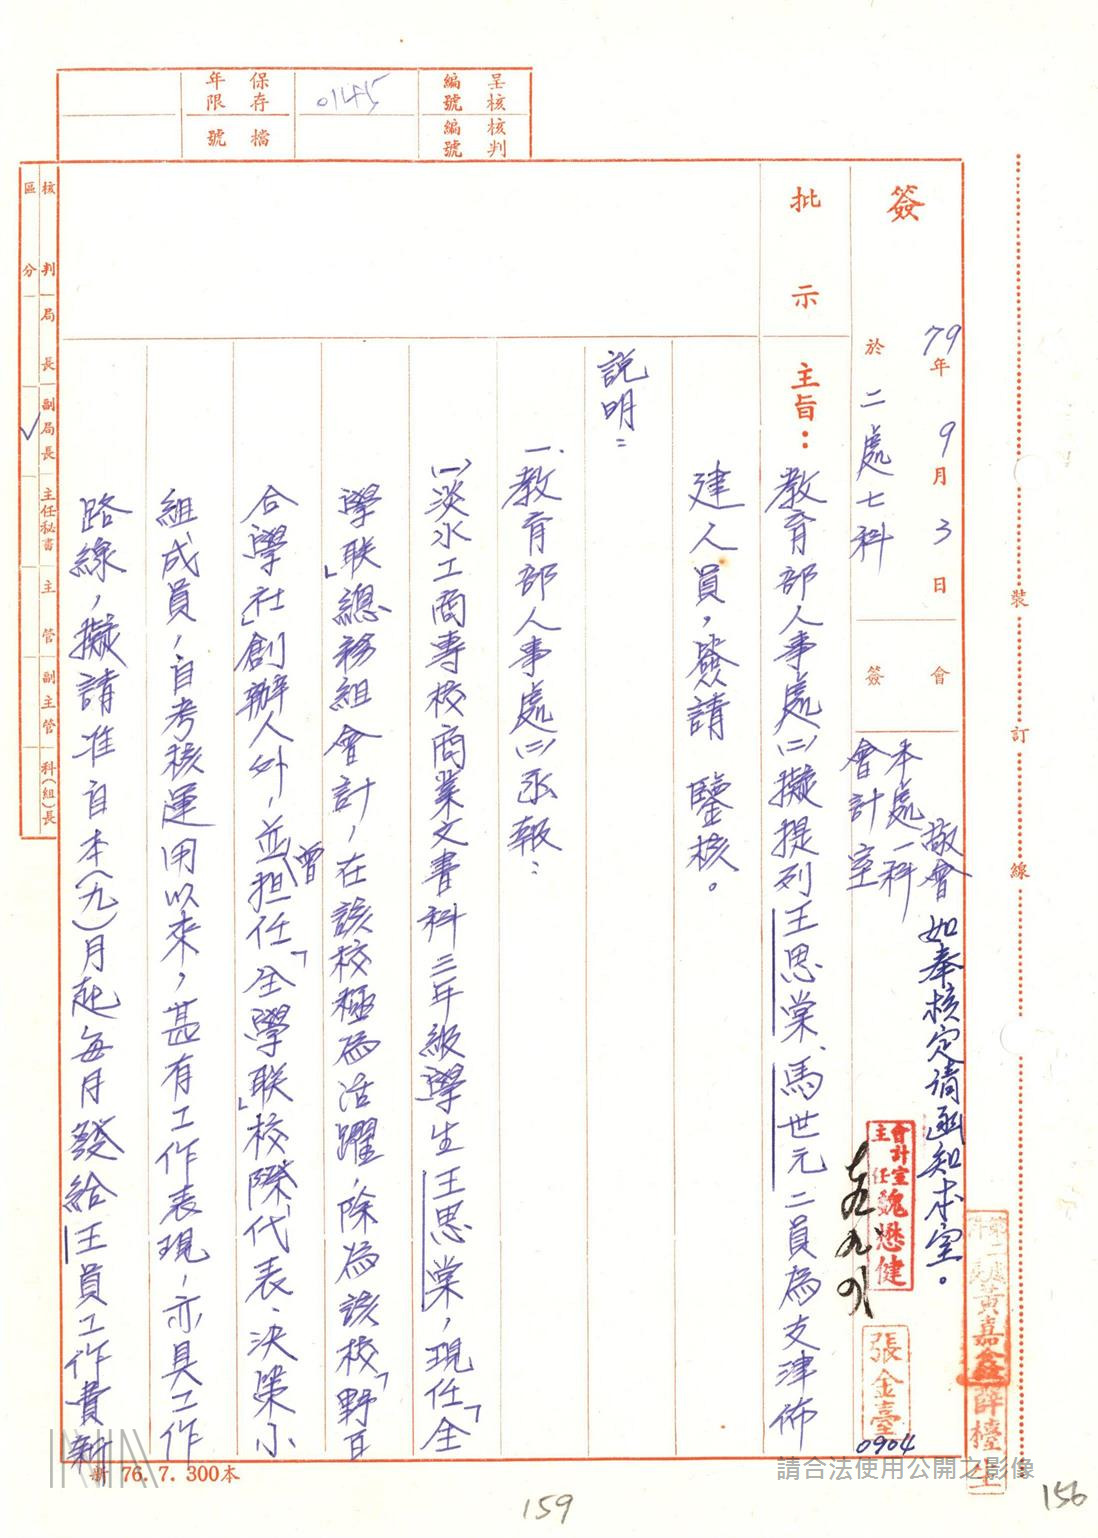 呈核編號
核判編號
01145
保存年限
檔號
簽
79年9月3日
於二處七科
會簽
敬會
本處一科
會計室
如奉核定請函知本室。
會計室主任魏懋健
張金臺
0904
黃嘉鑫
薛檯生
批示
主旨：教育部人事處㈡擬提列王思棠、馬世元二員為支津佈
建人員，簽請 鑒核。
說明：
一、教育部人事處㈡函報：
㈠淡水工商專校商業文書科三年級學生王思棠，現任「全
學聯」總務組會計，在該校極為活躍，除為該校「野百
合學社」創辦人外，並曾担任「全學聯」校際代表、決策小
組成員，自考核運用以來，甚有工作表現，亦具工作
路線，擬請准自本（九）月起每月發給王員工作費新
核判區分
局長
副局長
✓
主任秘書
主管
副主管
科（組）長
裝
訂
線
新 76. 7. 300本
請合法使用公開之影像
159
156